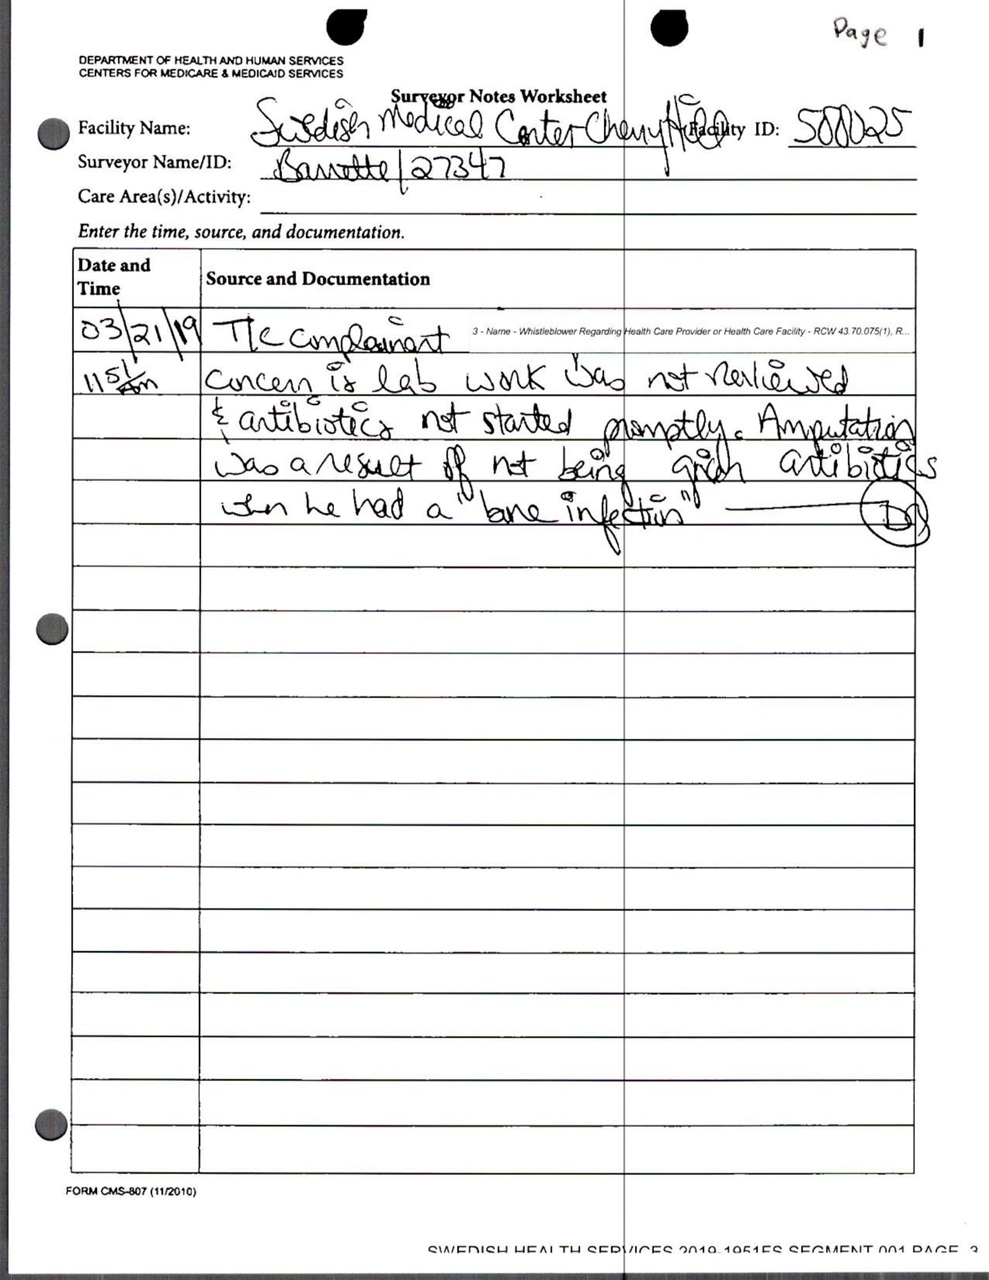 Page 1
DEPARTMENT OF HEALTH AND HUMAN SERVICES
CENTERS FOR MEDICARE & MEDICAID SERVICES
Surveyor Notes Worksheet
Facility Name: Swedish Medical Center Cherry Hill Facility ID: 500025
Surveyor Name/ID: Barrette/27347
Care Area(s)/Activity:
Enter the time, source, and documentation.
Date and Time
Source and Documentation
03/21/19 T/C complainant 3 - Name - Whistleblower Regarding Health Care Provider or Health Care Facility - RCW 43.70.075(1), R...
1151 AM concern is lab work was not reviewed
& antibiotics not started promptly. Amputation
was a result of not being given antibiotics
when he had a "bone infection"
FORM CMS-807 (11/2010)
SWEDISH HEALTH SERVICES 2019-1951FS SEGMENT 001 PAGE 3